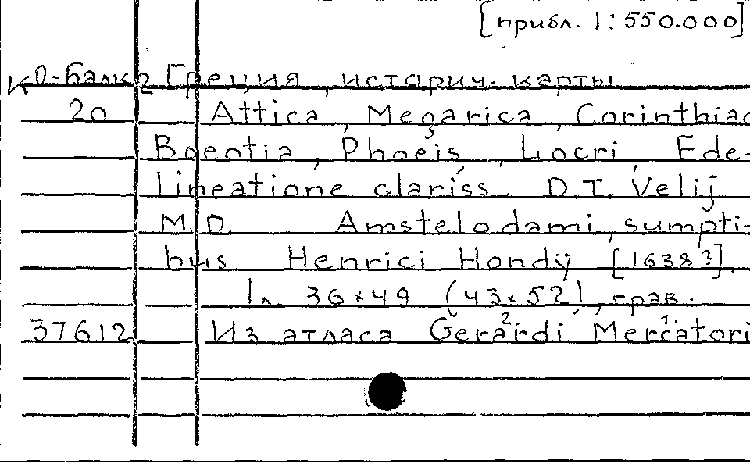 [прибл. 1:550.000]
КО-Балк 2 Греция, историч. карты
20 Attica, Megarica, Corinthiac
Boeotia, Phocis, Locri Ede-
lineatione clariss. D.I. Velij
M.D. Amstelodami, sumpti-
bus Henrici Hondÿ [1638?].
1 л. 36×49 (43×52), грав.
37612 Из атласа Gerardi² Mercatori¹